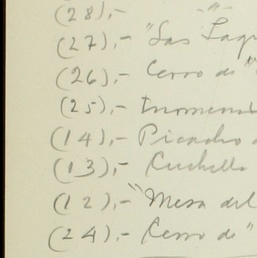 (28),- -"-
(27),- "Las
(26),- Cerro de "
(25),-
(14),- Picacho
(13),- Cuchillo
(12),- "Mesa del
(24),- Cerro de "